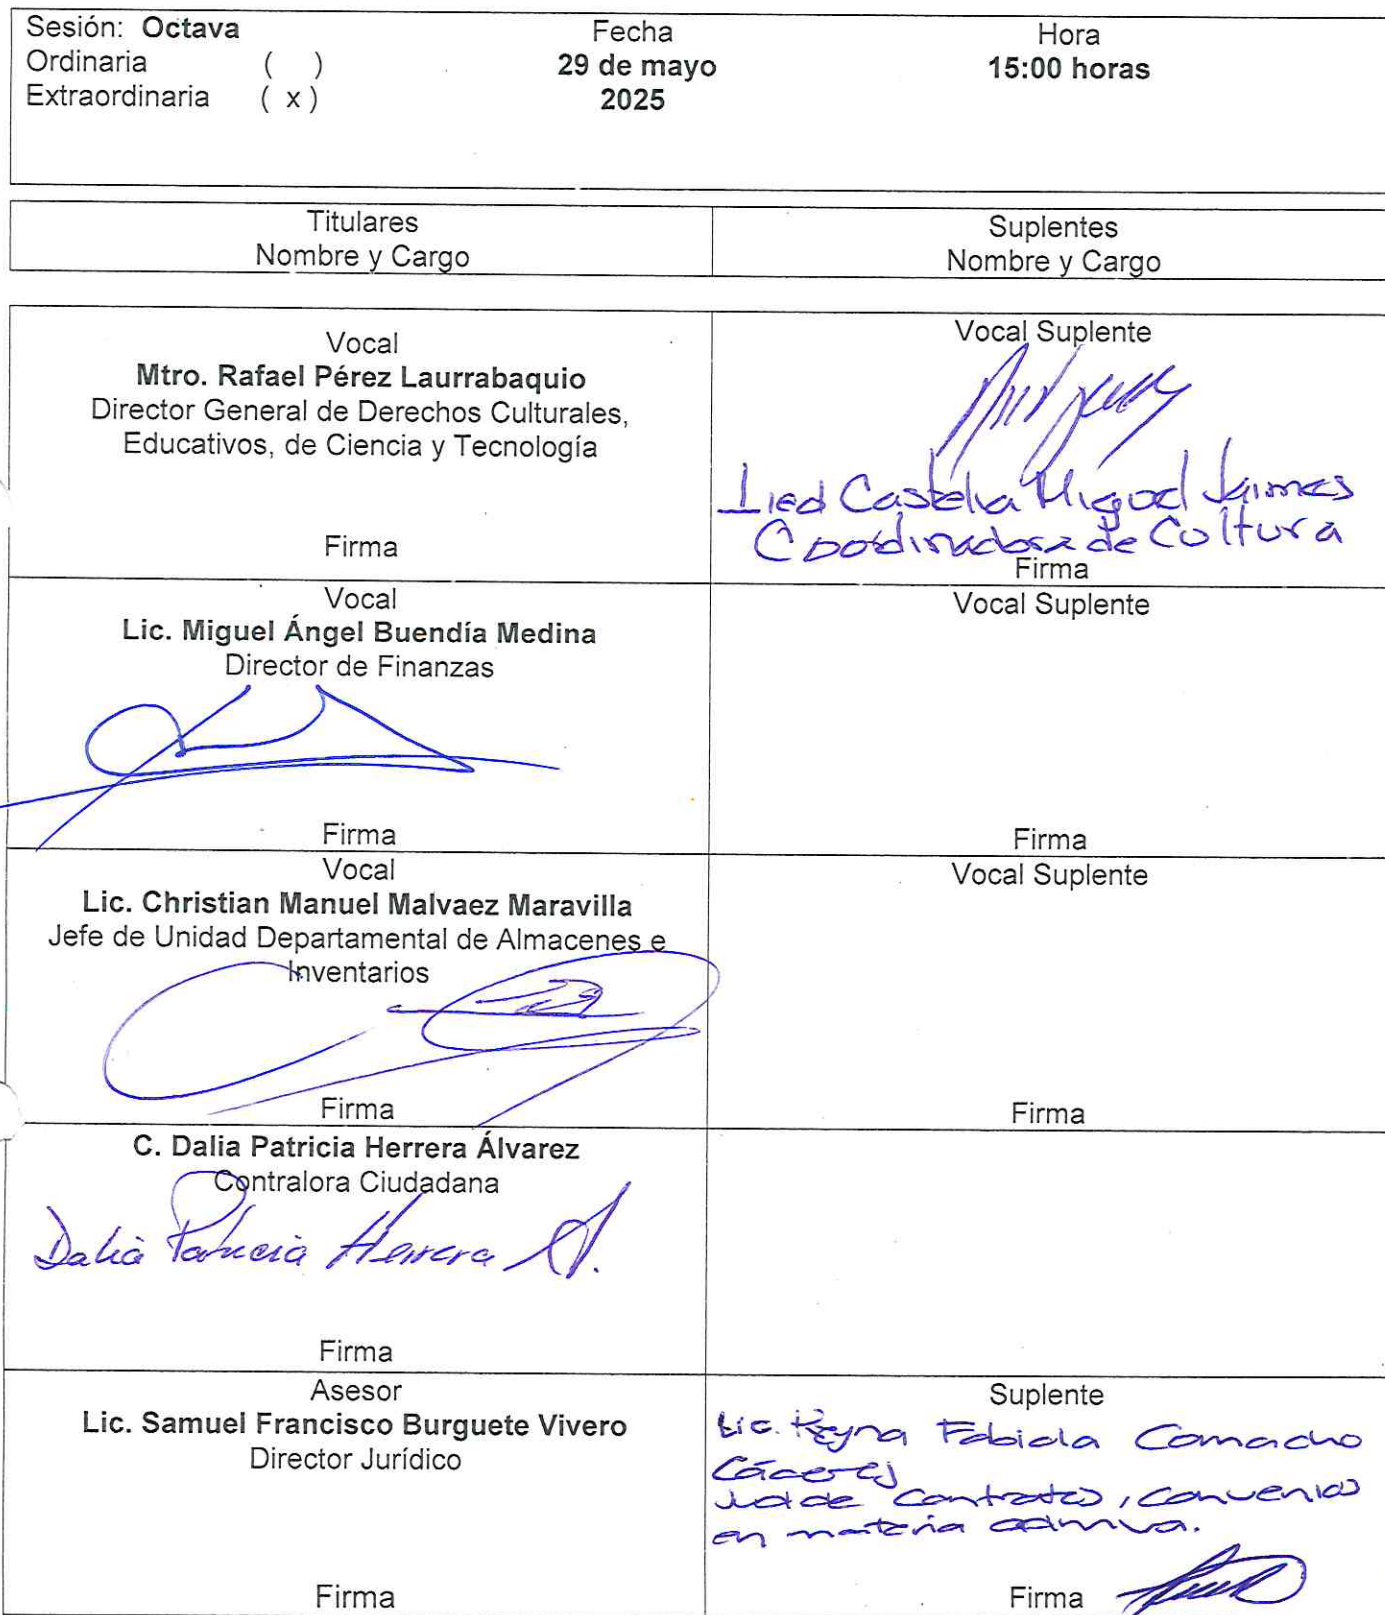 Sesión: Octava
Ordinaria ( )
Extraordinaria ( x )
Fecha
29 de mayo
2025
Hora
15:00 horas
Titulares
Nombre y Cargo
Suplentes
Nombre y Cargo
Vocal
Mtro. Rafael Pérez Laurrabaquio
Director General de Derechos Culturales,
Educativos, de Ciencia y Tecnología
Firma
Vocal Suplente
Castelia Miguel Jaimes
Coordinadora de Cultura
Firma
Vocal
Lic. Miguel Ángel Buendía Medina
Director de Finanzas
Firma
Vocal Suplente
Firma
Vocal
Lic. Christian Manuel Malvaez Maravilla
Jefe de Unidad Departamental de Almacenes e
Inventarios
Firma
Vocal Suplente
Firma
C. Dalia Patricia Herrera Álvarez
Contralora Ciudadana
Dalia Patricia Herrera A.
Firma
Asesor
Lic. Samuel Francisco Burguete Vivero
Director Jurídico
Firma
Suplente
Lic. Reyna Fabiola Camacho
Cáceres
Jud de Contratos, Convenios
en materia admva.
Firma